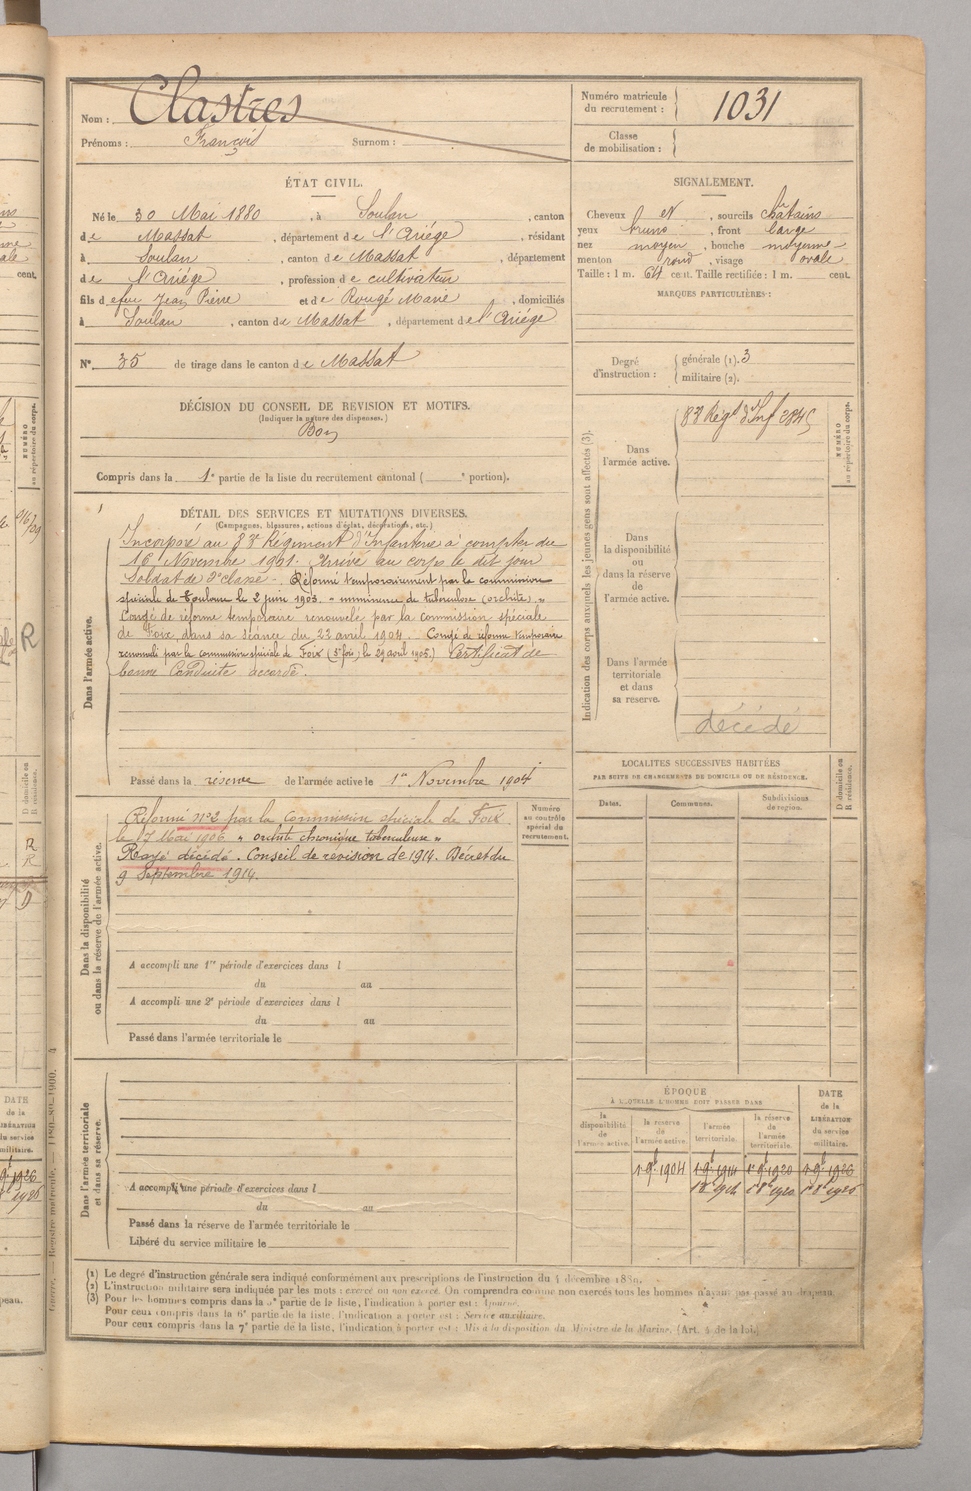 Nom : Clastres
Prénoms : François Surnom :
Numéro matricule du recrutement : 1031
Classe de mobilisation :
ÉTAT CIVIL.
Né le 30 Mai 1880, à Soulan, canton
de Massat, département de l'Ariége, résidant
à Soulan, canton de Massat, département
de l'Ariége, profession de cultivateur
fils d efeu Jean Pierre et de Rougé Marie, domiciliés
à Soulan, canton de Massat, département de l'Ariége
N° 35 de tirage dans le canton de Massat
SIGNALEMENT.
Cheveux et, sourcils châtains
yeux bruns, front large
nez moyen, bouche moyenne
menton rond, visage ovale
Taille : 1 m. 64 cent. Taille rectifiée : 1 m. cent.
MARQUES PARTICULIÈRES :
Degré d'instruction : générale (1). 3
militaire (2).
DÉCISION DU CONSEIL DE REVISION ET MOTIFS.
(Indiquer la nature des dispenses.)
Bon
Compris dans la 1e partie de la liste du recrutement cantonal ( e portion).
DÉTAIL DES SERVICES ET MUTATIONS DIVERSES.
(Campagnes, blessures, actions d'éclat, décorations, etc.)
Dans l'armée active.
Incorporé au 83e Régiment d'Infanterie à compter du
16 Novembre 1901. Arrivé au corps le dit jour
Soldat de 2e classe - Réformé temporairement par la commission
spéciale de Toulouse le 2 juin 1903. "imminence de tuberculose (orchite)."
Congé de réforme temporaire renouvelé par la commission spéciale
de Foix, dans sa séance du 23 avril 1904. Congé de réforme temporaire
renouvelé par la commission spéciale de Foix le 29 avril 1905. Certificat de
bonne Conduite accordé.
Passé dans la réserve de l'armée active le 1er Novembre 1904
Dans la disponibilité ou dans la réserve de l'armée active.
Réformé n°2 par la Commission spéciale de Foix
le 17 Mai 1906 "orchite chronique tuberculeuse"
Rayé décédé. Conseil de revision de 1914. Décret du
9 Septembre 1914.
A accompli une 1re période d'exercices dans l
du au
A accompli une 2e période d'exercices dans l
du au
Passé dans l'armée territoriale le
Numéro au contrôle spécial du recrutement.
Dans l'armée territoriale et dans sa réserve.
A accompli une période d'exercices dans l
du au
Passé dans la réserve de l'armée territoriale le
Libéré du service militaire le
Indication des corps auxquels les jeunes gens sont affectés (3).
Dans l'armée active.
83 Régt d'Inf
Dans la disponibilité ou dans la réserve de l'armée active.
Dans l'armée territoriale et dans sa réserve.
décédé
NUMÉRO au répertoire du corps.
LOCALITÉS SUCCESSIVES HABITÉES
PAR SUITE DE CHANGEMENTS DE DOMICILE OU DE RÉSIDENCE.
Dates. Communes. Subdivisions de région.
D domicile ou R résidence.
ÉPOQUE
À LAQUELLE L'HOMME DOIT PASSER DANS
la disponibilité de l'armée active.
la réserve de l'armée active.
l'armée territoriale.
la réserve de l'armée territoriale.
DATE de la LIBÉRATION du service militaire.
1 9bre 1904 1 9bre 1914 1 9bre 1920 1 9bre 1926
1 8bre 1914 1 8bre 1920 1 8bre 1926
(1) Le degré d'instruction générale sera indiqué conformément aux prescriptions de l'instruction du 4 décembre 1889.
(2) L'instruction militaire sera indiquée par les mots : exercé ou non exercé. On comprendra comme non exercés tous les hommes n'ayant pas passé au drapeau.
(3) Pour les hommes compris dans la 2e partie de la liste, l'indication à porter est : Ajourné.
Pour ceux compris dans la 6e partie de la liste, l'indication à porter est : Service auxiliaire.
Pour ceux compris dans la 7e partie de la liste, l'indication à porter est : Mis à la disposition du Ministre de la Marine. (Art. 4 de la loi.)